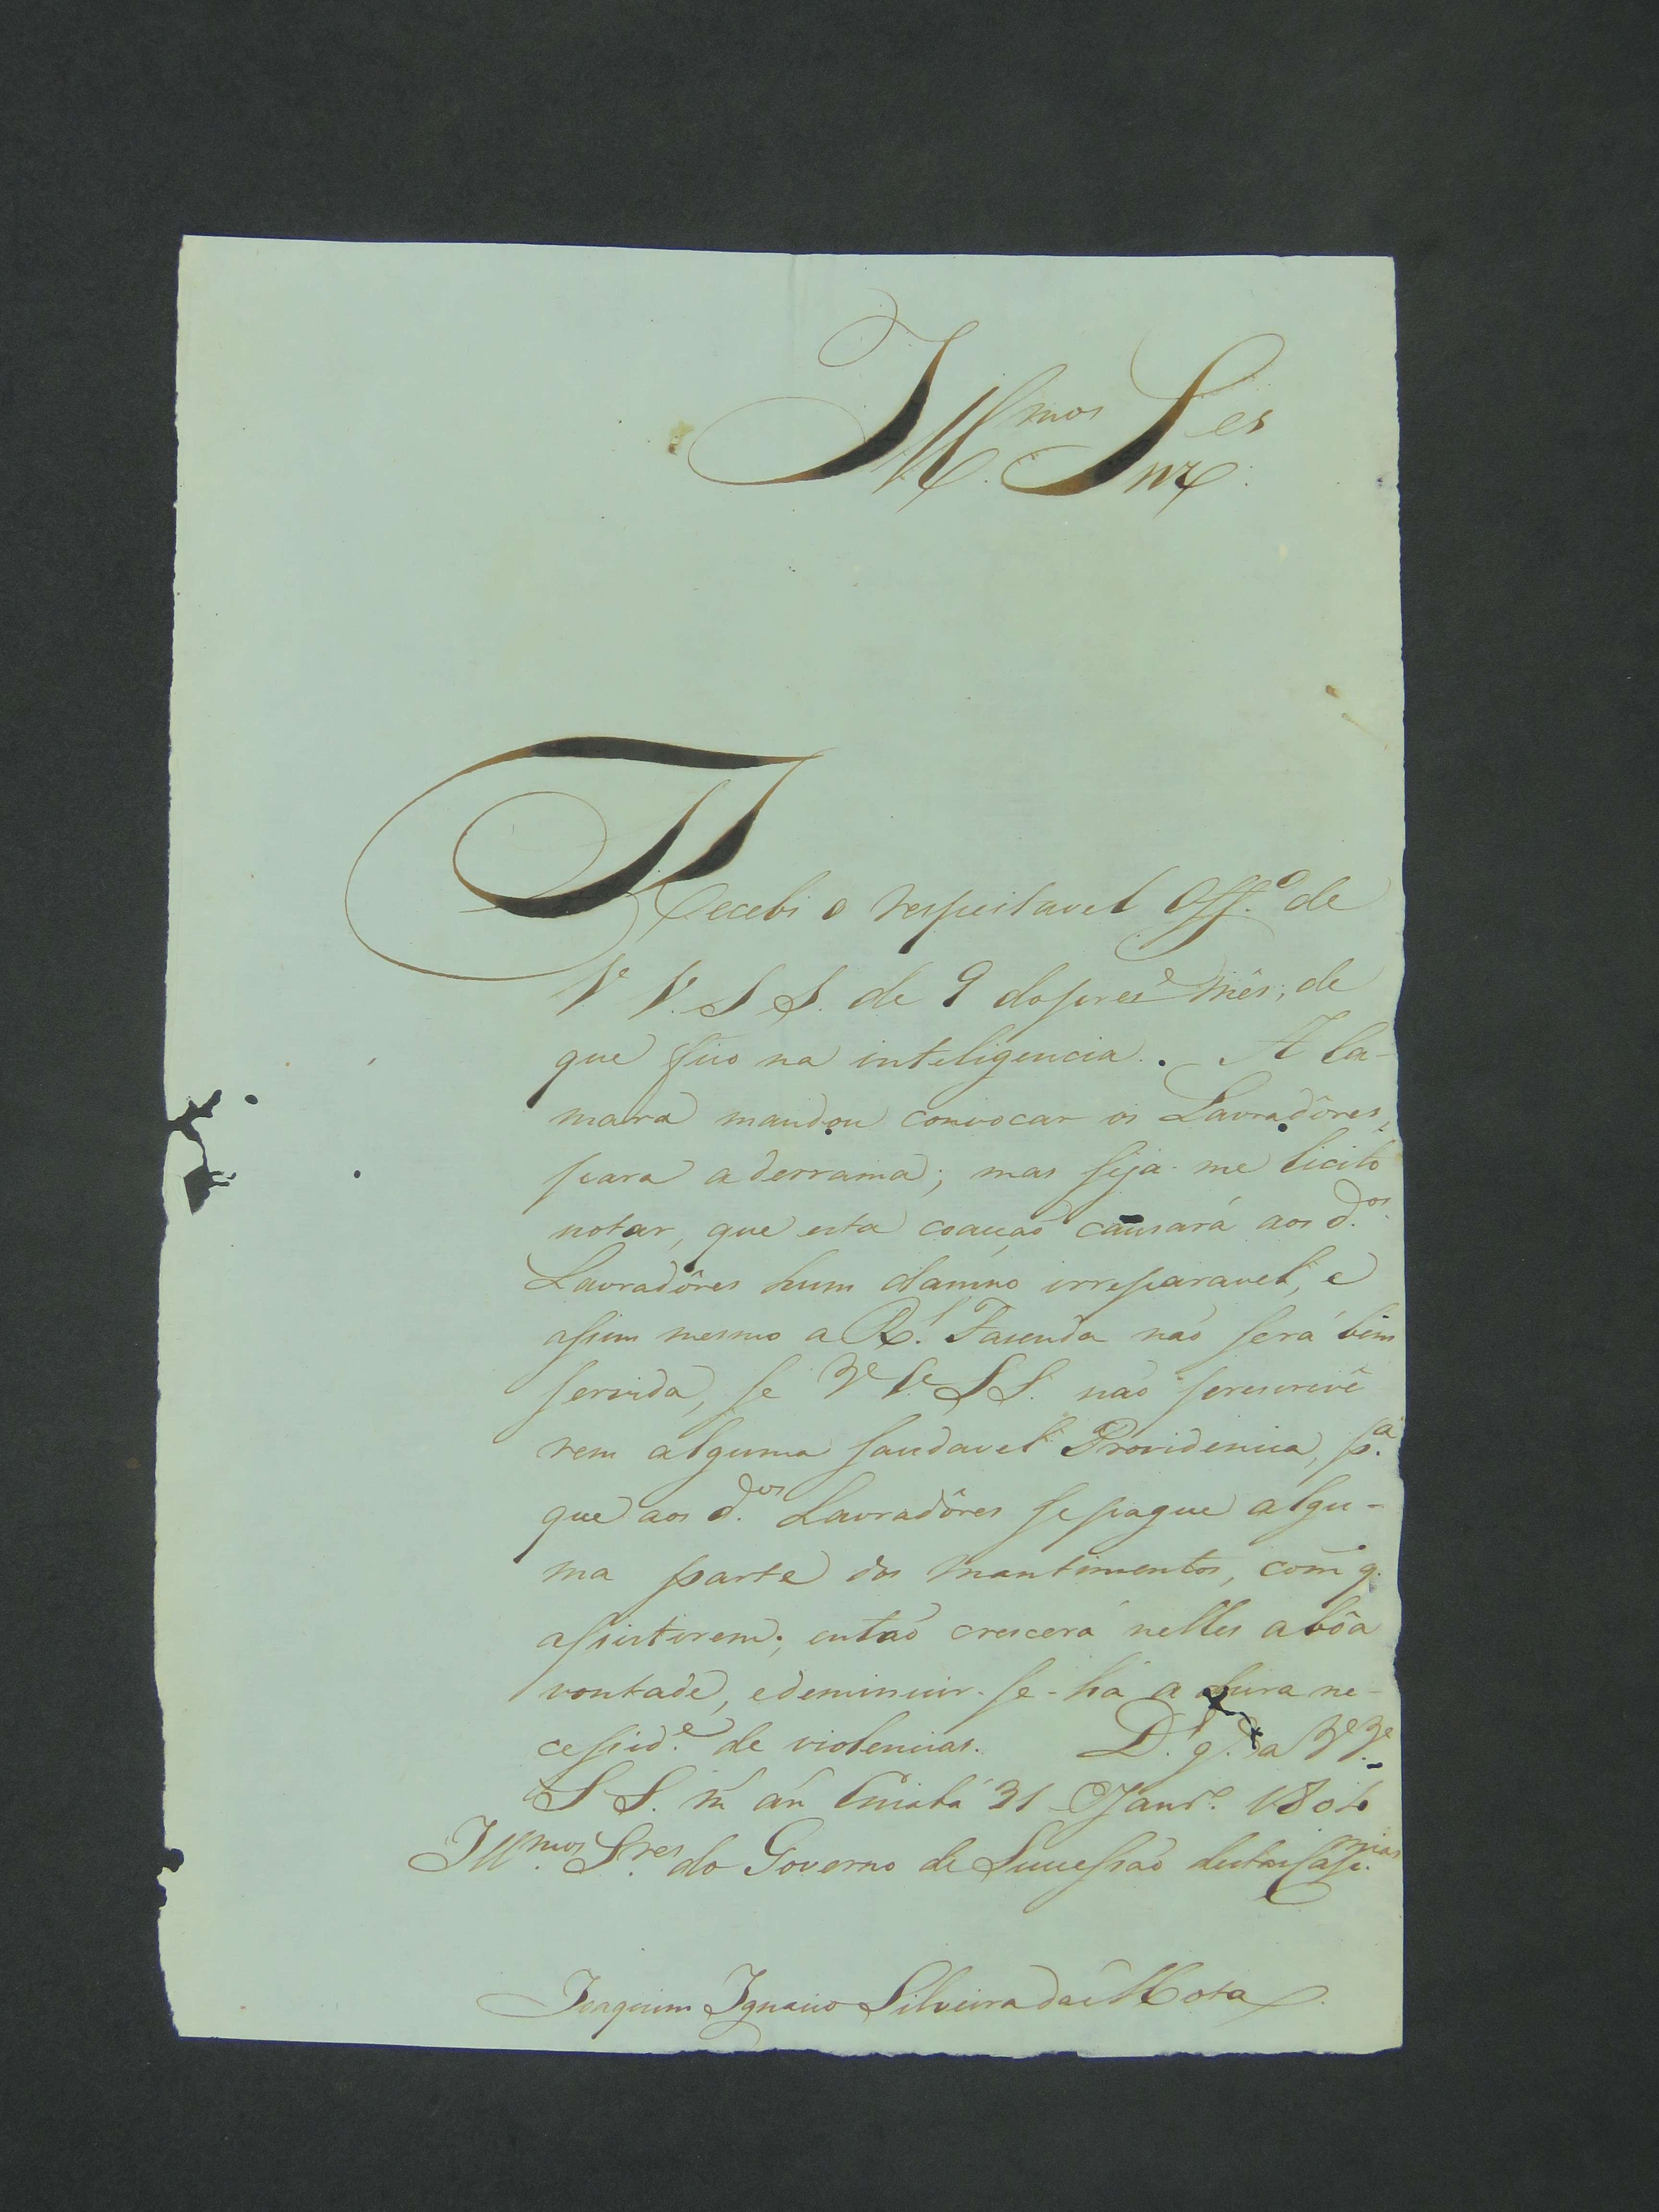 Ill.mos Snr.es
Recebi o respeitavel Off.o de
V. V. S S. de 9 do pres.e mês; de
que fico na inteligencia. A Ca-
mara mandou convocar os Lavradôres,
para a derrama; mas seja-me licito
notar, que esta coacçaõ causará aos d.os
Lavradôres hum damno irreparavel, e
assim mesmo a R.l Fasenda naõ será bem
servida, se V. V. S S. naõ prescrevê
rem alguma saudavel Providencia, p.a
que aos d.os Lavradôres se pague algu-
ma parte dos mantimentos, com q.
assistirem; entaõ crescerá nelles a bôa
vontade, e deminuir-se-há a dura ne-
cessid.e de violencias. D.s g.de a V. V.
S S. m. an. Cuiabá 31 Janr.o
Ill.mos Snr.es do Governo de Sucessaõ destas Cap.nias
Joaquim Ignacio Silveira da Mota